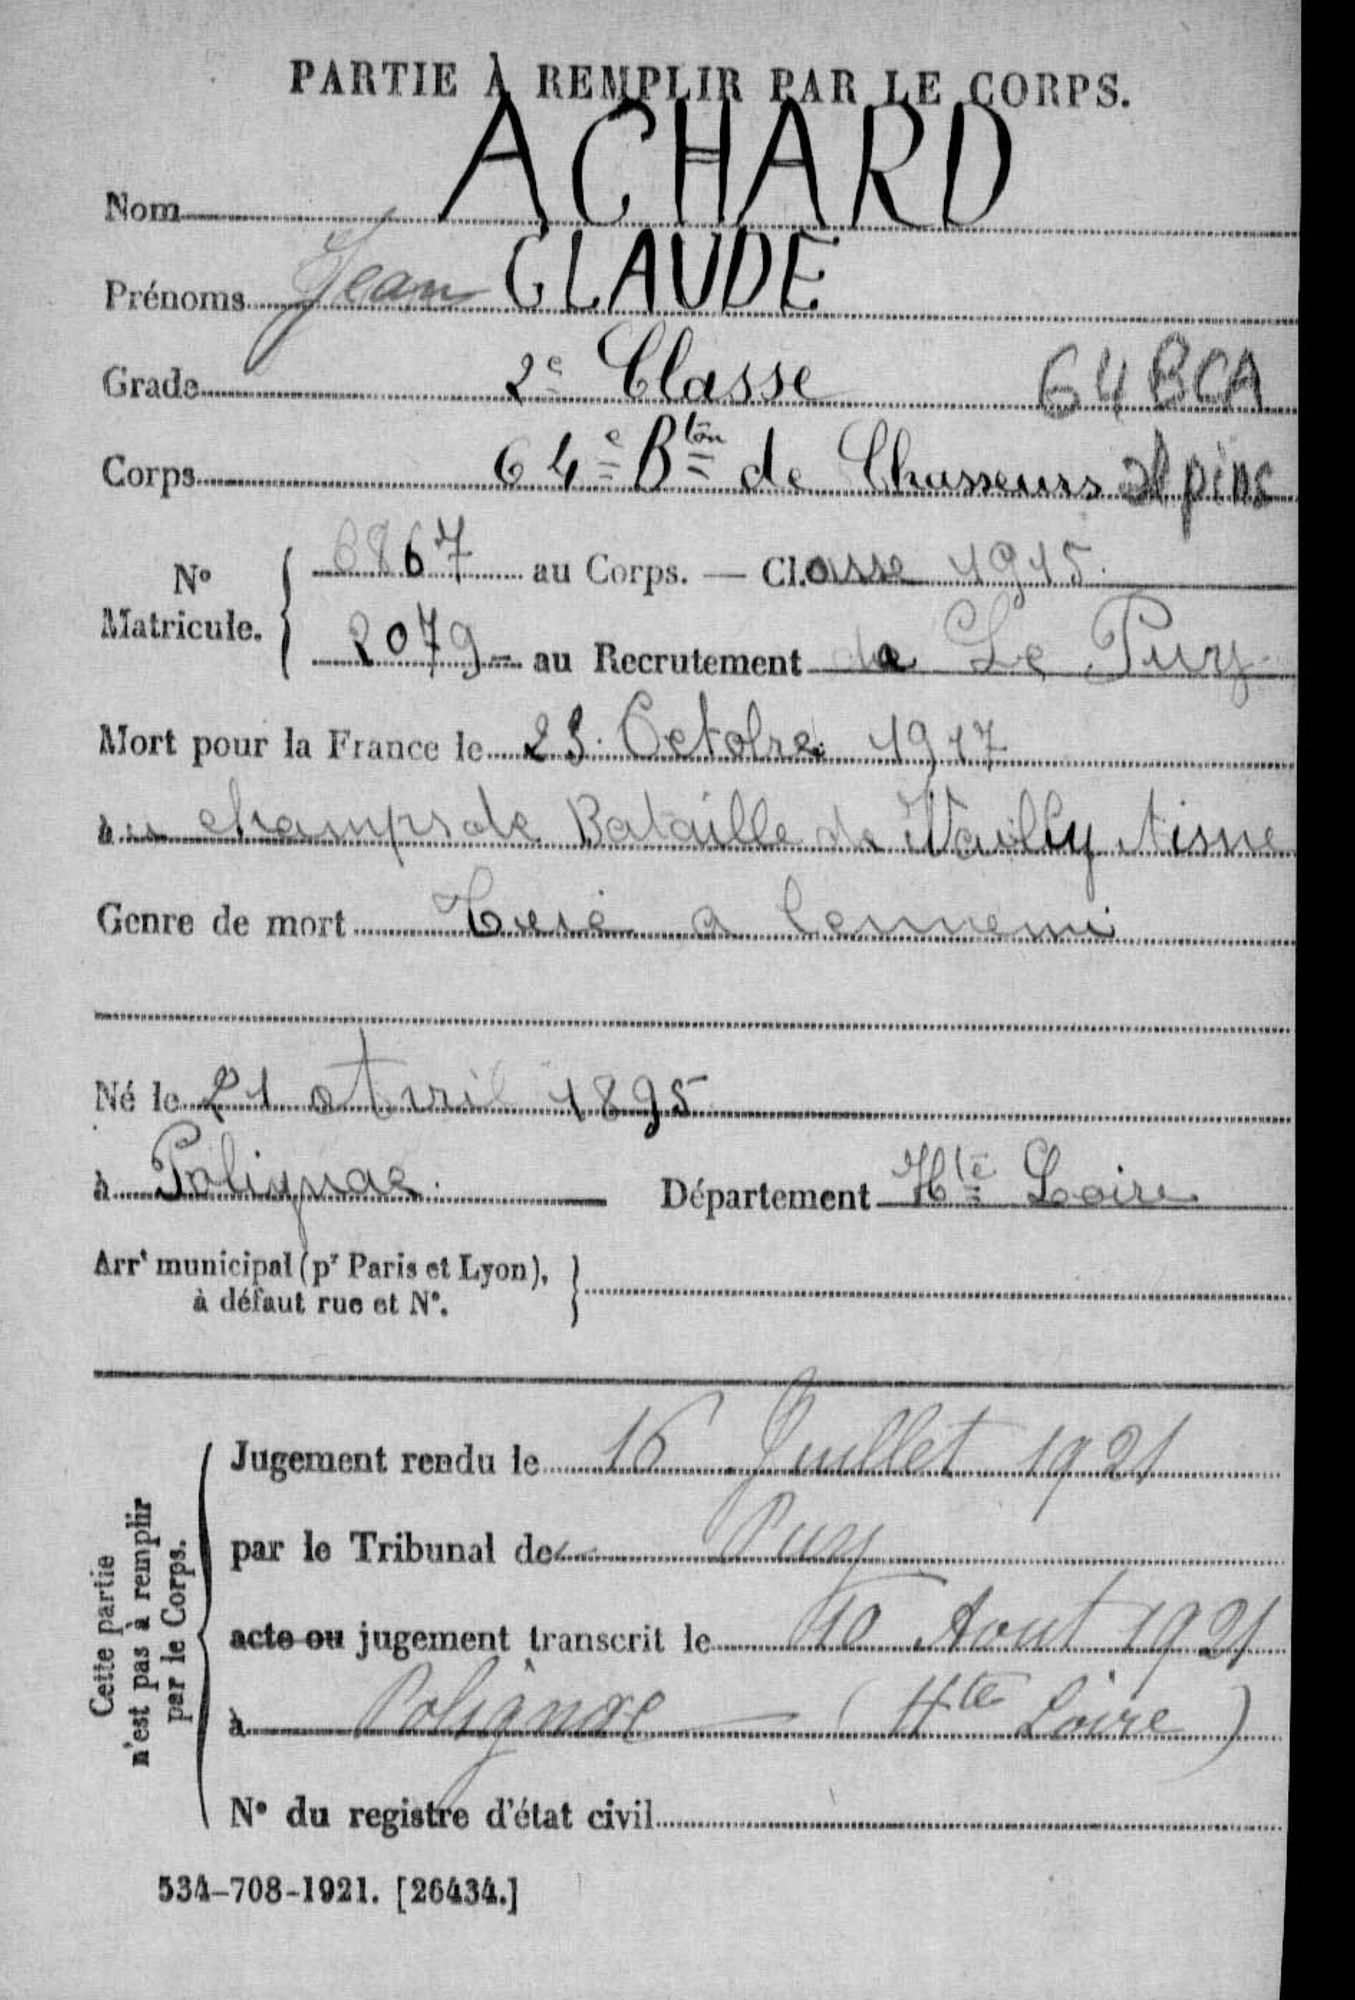 PARTIE À REMPLIR PAR LE CORPS.
Nom ACHARD
Prénoms Jean CLAUDE
Grade 2e Classe 64 BCA
Corps 64e Bton de Chasseurs alpins
No Matricule. { 6867 au Corps. — Classe 1915.
2079 - au Recrutement de Le Puy
Mort pour la France le Octobre 1917
à champs de Bataille de Vailly Aisne
Genre de mort Tué a lennemi
Né le 21 Avril 1895
à Polignac. Département Hte Loire
Arrt municipal (pr Paris et Lyon), à défaut rue et N°. }
Cette partie n'est pas à remplir par le Corps.
Jugement rendu le 16 Juillet 1921
par le Tribunal de Puy
acte ou jugement transcrit le 10 Aout 1921
à Polignac (Hte Loire)
N° du registre d'état civil
534-708-1921. [26434.]